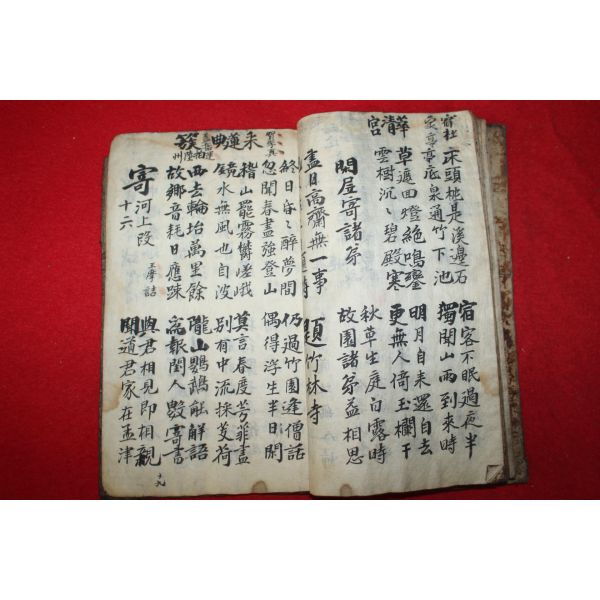 宿杜
床頭枕是溪邊石
底泉通竹下池
宿客不眠過夜半
獨聞山雨到來時
華清宮
草遮回燈絶鳴鑾
雲樹沉〻碧殿寒
明月自來還自去
更無人倚玉欄干
閑居寄諸弟
秋草生庭白露時
故園諸弟益相思
盡日高齋無一事
題竹林寺
終日昏〻醉夢間
忽聞春盡強登山
仍過竹園逢僧話
偶得浮生半日閑
采蓮曲
稽山罷霧鬱嵯峨
鏡水無風也自波
莫言春度芳菲盡
別有中流採芰荷
簇拍陸州
西去輪坮萬里餘
故鄉音耗日應疎
隴山鸚鵡能解語
爲報閨人數寄書
寄河上段十六
王摩詰
與君相見即相親
聞道君家在孟津
十九